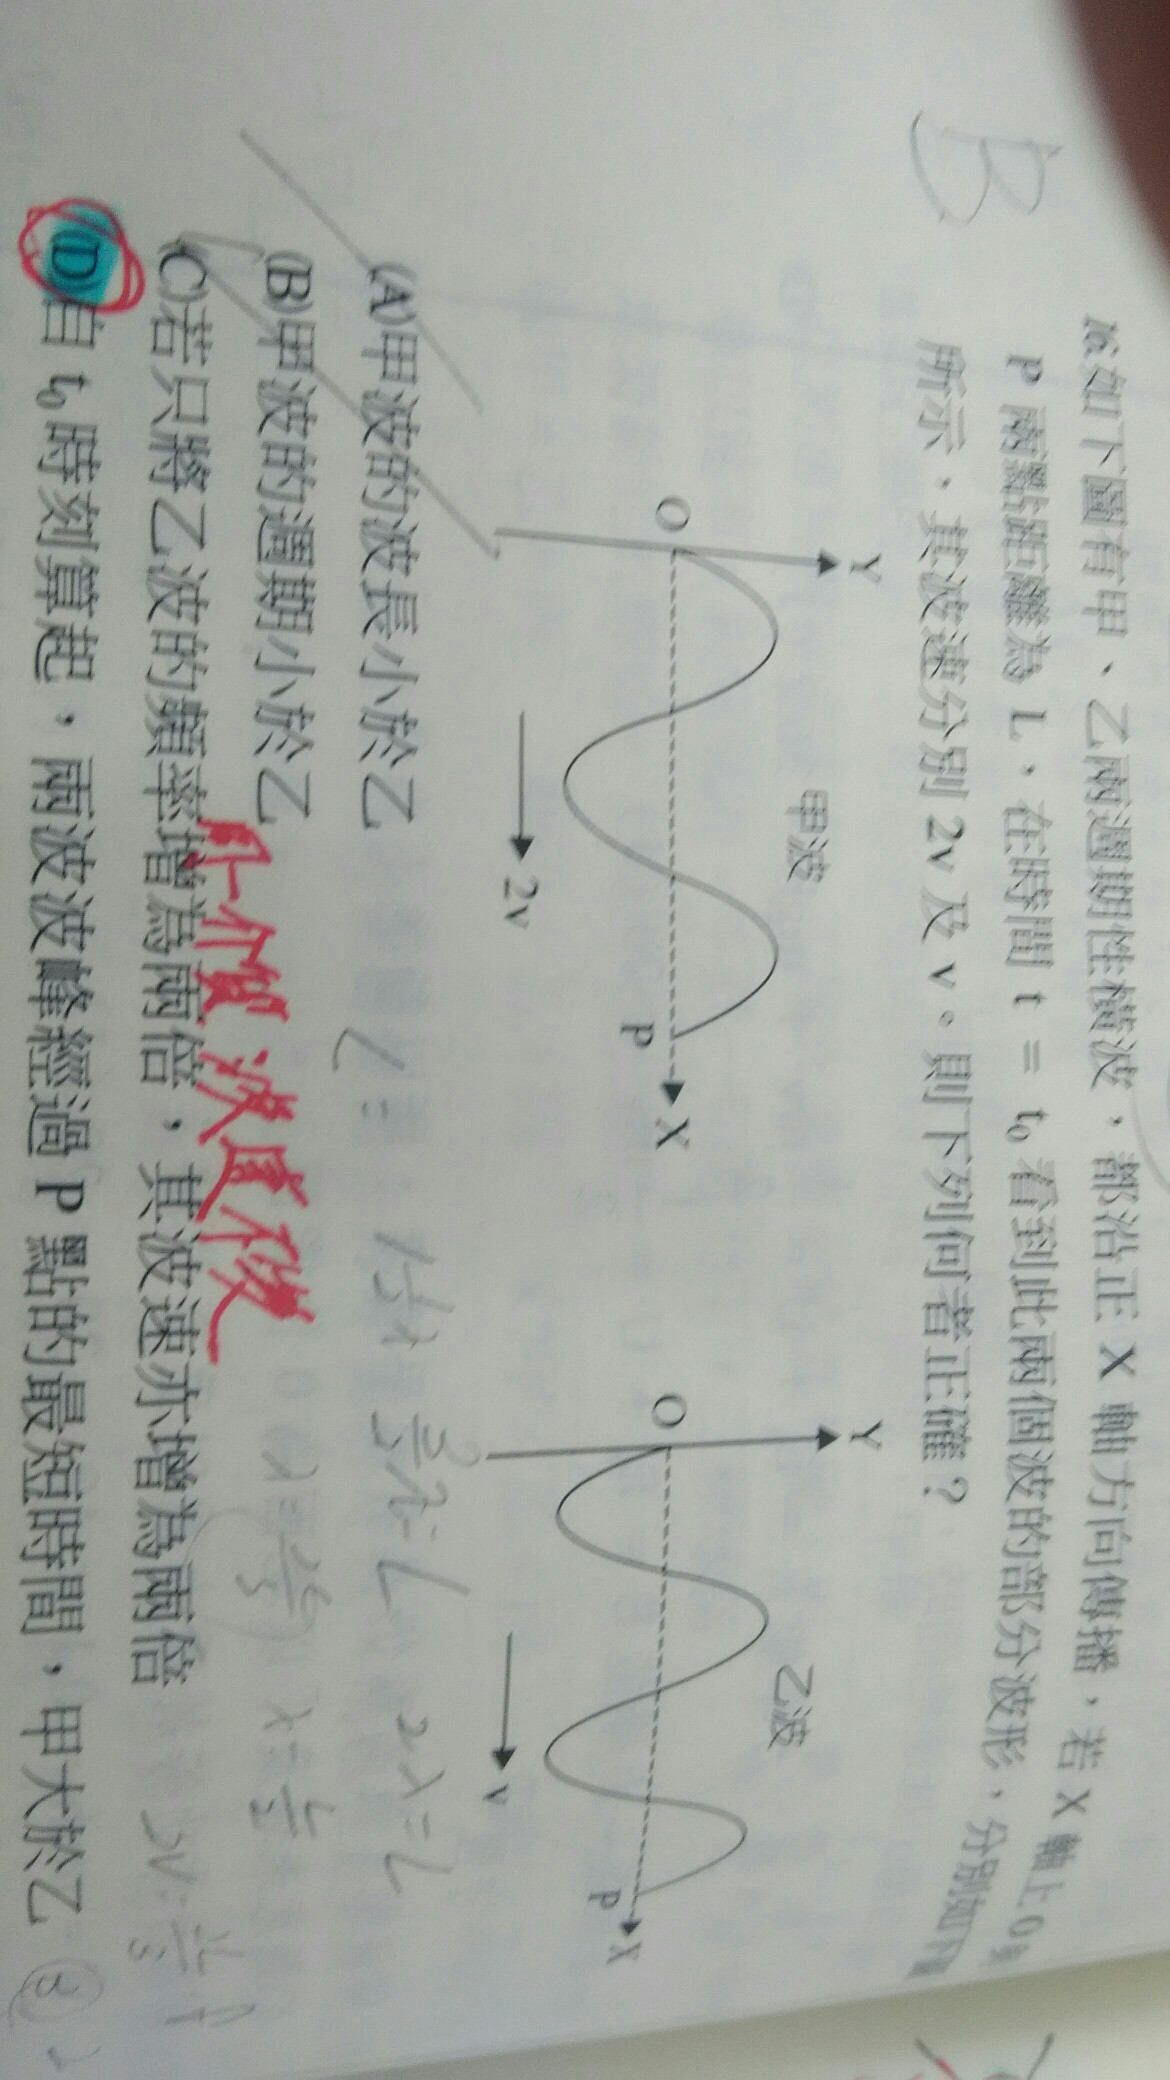 B
16.如下圖有甲、乙兩週期性橫波，都沿正 X 軸方向傳播，若 X 軸上 O 與
P 兩點距離為 L，在時間 t = t₀ 看到此兩個波的部分波形，分別如下圖
所示，其波速分別 2v 及 v。則下列何者正確？
Y
甲波
O
P
X
2v
Y
乙波
O
P
X
v
(A)甲波的波長小於乙
L = 1½λ = 3/2 λ = L 2λ = L
(B)甲波的週期小於乙
λ = L/2
(C)若只將乙波的頻率增為兩倍，其波速亦增為兩倍
(D)自 t₀ 時刻算起，兩波波峰經過 P 點的最短時間，甲大於乙